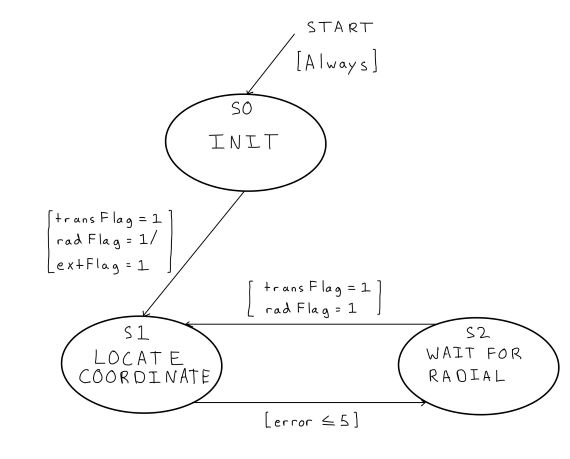 START
[Always]
S0
INIT
[transFlag = 1
radFlag = 1/
extFlag = 1]
[transFlag = 1
radFlag = 1]
S1
LOCATE
COORDINATE
S2
WAIT FOR
RADIAL
[error ≤ 5]